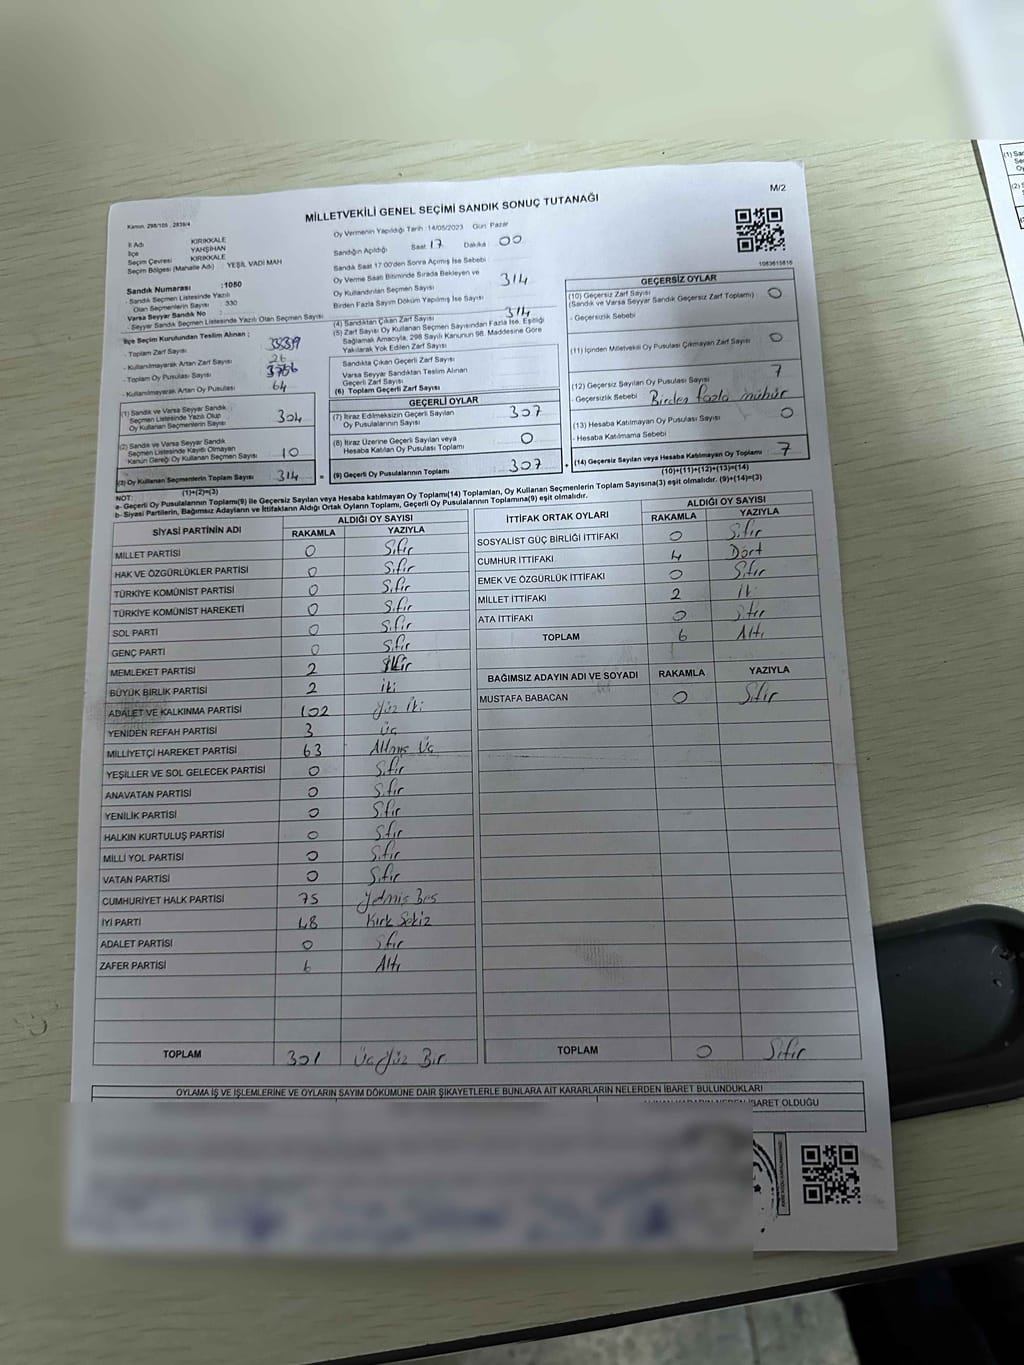 M/2
MİLLETVEKİLİ GENEL SEÇİMİ SANDIK SONUÇ TUTANAĞI
Kanun. 298/105 , 2839/4
İl Adı KIRIKKALE
İlçe YAHŞİHAN
Seçim Çevresi KIRIKKALE
Seçim Bölgesi (Mahalle Adı) : YEŞİL VADİ MAH
Sandık Numarası :1080
- Sandık Seçmen Listesinde Yazılı
Olan Seçmenlerin Sayısı : 330
Varsa Seyyar Sandık No :
- Seyyar Sandık Seçmen Listesinde Yazılı Olan Seçmen Sayısı
Oy Vermenin Yapıldığı Tarih :14/05/2023 Gün: Pazar
Sandığın Açıldığı Saat 17 Dakika : 00
Sandık Saat 17:00'den Sonra Açılmış İse Sebebi :
Oy Verme Saati Bitiminde Sırada Bekleyen ve
Oy Kullandırılan Seçmen Sayısı 314
Birden Fazla Sayım Döküm Yapılmış İse Sayısı :
1083615816
İlçe Seçim Kurulundan Teslim Alınan ;
- Toplam Zarf Sayısı
- Kullanılmayarak Artan Zarf Sayısı 26
- Toplam Oy Pusulası Sayısı
- Kullanılmayarak Artan Oy Pusulası 64
(1) Sandık ve Varsa Seyyar Sandık
Seçmen Listesinde Yazılı Olup
Oy Kullanan Seçmenlerin Sayısı 304
(2) Sandık ve Varsa Seyyar Sandık
Seçmen Listesinde Kayıtlı Olmayan
Kanun Gereği Oy Kullanan Seçmen Sayısı 10
(3) Oy Kullanan Seçmenlerin Toplam Sayısı 314
(1)+(2)=(3)
(4) Sandıktan Çıkan Zarf Sayısı 314
(5) Zarf Sayısı Oy Kullanan Seçmen Sayısından Fazla İse, Eşitliği
Sağlamak Amacıyla, 298 Sayılı Kanunun 98. Maddesine Göre
Yakılarak Yok Edilen Zarf Sayısı
Sandıkta Çıkan Geçerli Zarf Sayısı
Varsa Seyyar Sandıktan Teslim Alınan
Geçerli Zarf Sayısı
(6) Toplam Geçerli Zarf Sayısı
GEÇERLİ OYLAR
(7) İtiraz Edilmeksizin Geçerli Sayılan
Oy Pusulalarının Sayısı 307
(8) İtiraz Üzerine Geçerli Sayılan veya
Hesaba Katılan Oy Pusulası Toplamı 0
= (9) Geçerli Oy Pusulalarının Toplamı 307
GEÇERSİZ OYLAR
(10) Geçersiz Zarf Sayısı 0
(Sandık ve Varsa Seyyar Sandık Geçersiz Zarf Toplamı)
- Geçersizlik Sebebi
(11) İçinden Milletvekili Oy Pusulası Çıkmayan Zarf Sayısı 0
(12) Geçersiz Sayılan Oy Pusulası Sayısı 7
- Geçersizlik Sebebi Birden fazla mühür
(13) Hesaba Katılmayan Oy Pusulası Sayısı 0
- Hesaba Katılmama Sebebi
+ (14) Geçersiz Sayılan veya Hesaba Katılmayan Oy Toplamı 7
(10)+(11)+(12)+(13)=(14)
NOT:
a- Geçerli Oy Pusulalarının Toplamı(9) ile Geçersiz Sayılan veya Hesaba katılmayan Oy Toplamı(14) Toplamları, Oy Kullanan Seçmenlerin Toplam Sayısına(3) eşit olmalıdır. (9)+(14)=(3)
b- Siyasi Partilerin, Bağımsız Adayların ve İttifakların Aldığı Ortak Oyların Toplamı, Geçerli Oy Pusulalarının Toplamına(9) eşit olmalıdır.
SİYASİ PARTİNİN ADI ALDIĞI OY SAYISI
RAKAMLA YAZIYLA
MİLLET PARTİSİ 0 Sıfır
HAK VE ÖZGÜRLÜKLER PARTİSİ 0 Sıfır
TÜRKİYE KOMÜNİST PARTİSİ 0 Sıfır
TÜRKİYE KOMÜNİST HAREKETİ 0 Sıfır
SOL PARTİ 0 Sıfır
GENÇ PARTİ 0 Sıfır
MEMLEKET PARTİSİ 2
BÜYÜK BİRLİK PARTİSİ 2 İki
ADALET VE KALKINMA PARTİSİ 102 Yüz İki
YENİDEN REFAH PARTİSİ 3 Üç
MİLLİYETÇİ HAREKET PARTİSİ 63 Altmış Üç
YEŞİLLER VE SOL GELECEK PARTİSİ 0 Sıfır
ANAVATAN PARTİSİ 0 Sıfır
YENİLİK PARTİSİ 0 Sıfır
HALKIN KURTULUŞ PARTİSİ 0 Sıfır
MİLLİ YOL PARTİSİ 0 Sıfır
VATAN PARTİSİ 0 Sıfır
CUMHURİYET HALK PARTİSİ 75 Yetmiş Beş
İYİ PARTİ 48 Kırk Sekiz
ADALET PARTİSİ 0 Sıfır
ZAFER PARTİSİ 6 Altı
TOPLAM 301 Üç Yüz Bir
İTTİFAK ORTAK OYLARI ALDIĞI OY SAYISI
RAKAMLA YAZIYLA
SOSYALİST GÜÇ BİRLİĞİ İTTİFAKI 0 Sıfır
CUMHUR İTTİFAKI 4 Dört
EMEK VE ÖZGÜRLÜK İTTİFAKI 0 Sıfır
MİLLET İTTİFAKI 2 İki
ATA İTTİFAKI 0 Sıfır
TOPLAM 6 Altı
BAĞIMSIZ ADAYIN ADI VE SOYADI RAKAMLA YAZIYLA
MUSTAFA BABACAN 0 Sıfır
TOPLAM 0 Sıfır
OYLAMA İŞ VE İŞLEMLERİNE VE OYLARIN SAYIM DÖKÜMÜNE DAİR ŞİKAYETLERLE BUNLARA AİT KARARLARIN NELERDEN İBARET BULUNDUKLARI
İBARET OLDUĞU